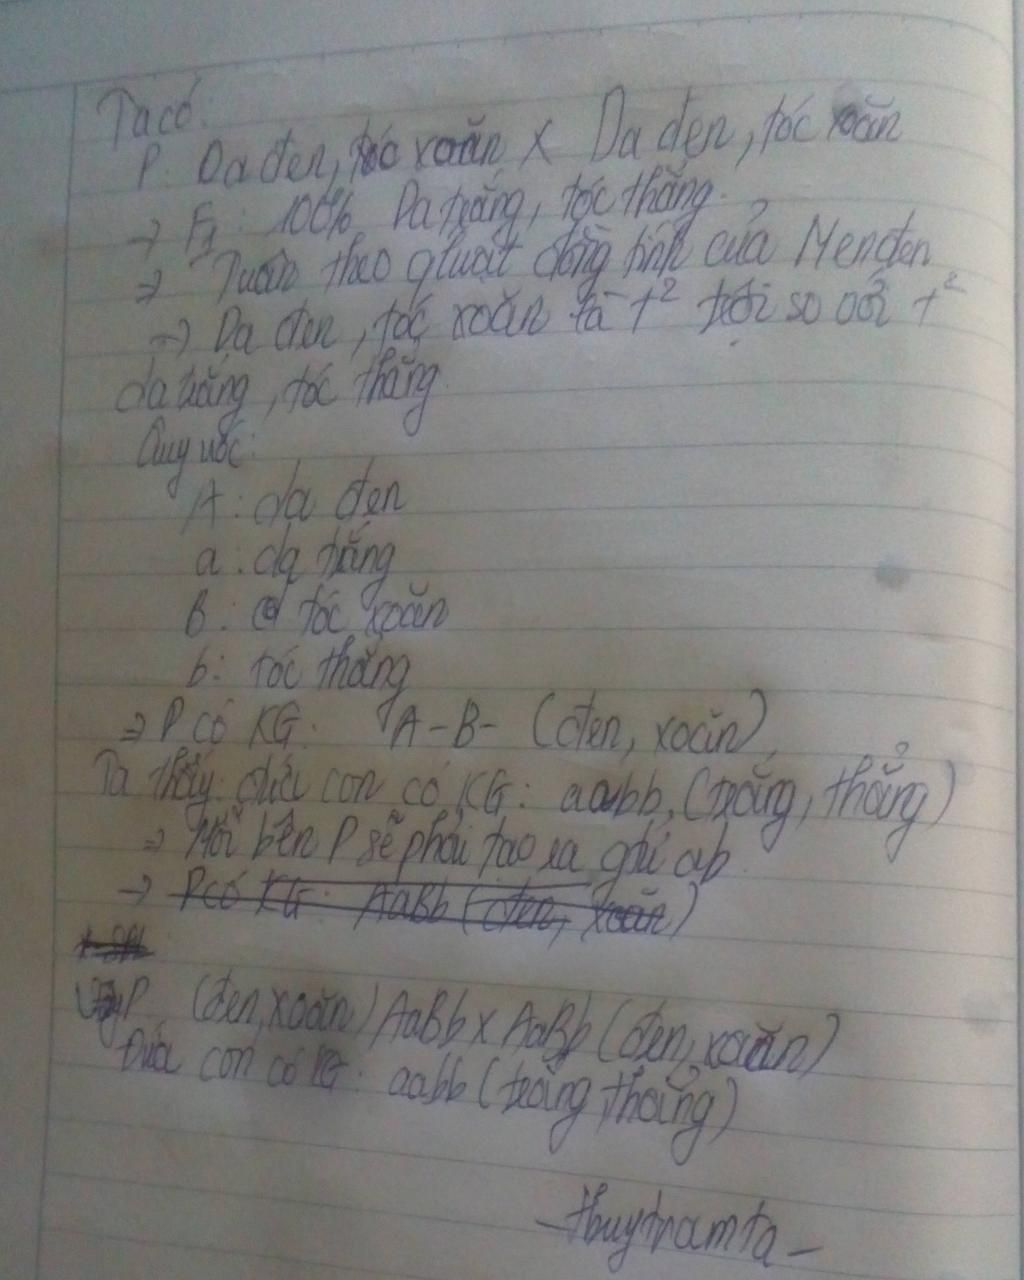 Ta có:
P: Da đen, tóc xoăn x Da đen, tóc xoăn
→ F1: 100% Da trắng, tóc thẳng.
⇒ Tuân theo qluật đồng tính của Menđen
→ Da đen, tóc xoăn là t² trội so với t²
da trắng, tóc thẳng.
Quy ước:
A: da đen
a: da trắng
B: tóc xoăn
b: tóc thẳng
⇒ P có KG: A-B- (đen, xoăn)
Ta thấy: đứa con có KG: aabb, (trắng, thẳng)
⇒ Mỗi bên P sẽ phải tạo ra gtử ab
→ P có KG: AaBb (đen, xoăn)
Vậy P (đen, xoăn) AaBb x AaBb (đen, xoăn)
Đứa con có KG: aabb (trắng, thẳng)
- thuytramta -